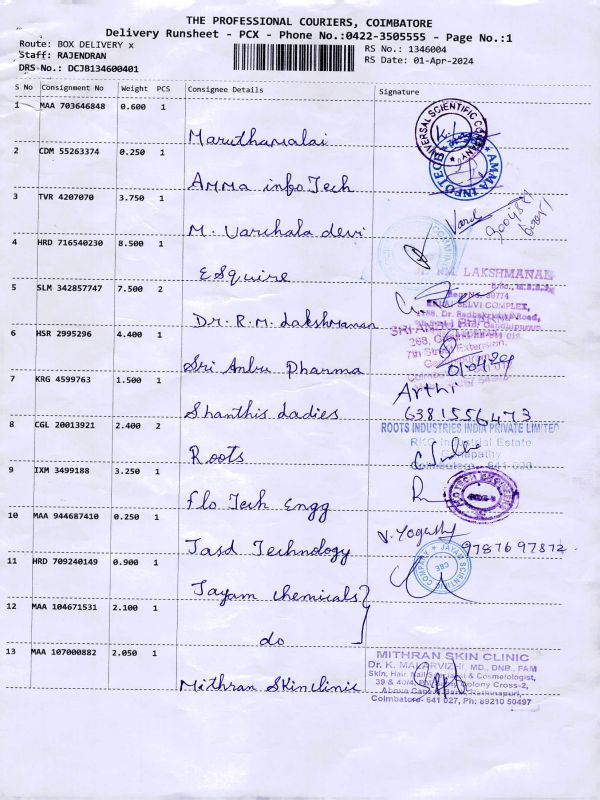 THE PROFESSIONAL COURIERS, COIMBATORE
Delivery Runsheet - PCX - Phone No.:0422-3505555 - Page No.:1
Route: BOX DELIVERY x
RS No.: 1346004
Staff: RAJENDRAN
RS Date: 01-Apr-2024
DRS-No.: DCJB134600401
S No Consignment No Weight PCS Consignee Details Signature
1 MAA 703646848 0.600 1
Maruthamalai
UNIVERSAL SCIENTIFIC COMPANY
2 CDM 55263374 0.250 1
Amma info Tech
AMMA INFOTECH
3 TVR 4207070 3.750 1
M. Varchala devi
4 HRD 716540230 8.500 1
ESquire
5 SLM 342857747 7.500 2
Dr. R.M. Lakshmanan
LAKSHMANAN
6 HSR 2995296 4.400 1
Sri Anbu Pharma
7th Street Extension,
7 KRG 4599763 1.500 1
Shanthis dadies
Arthi
6381556473
8 CGL 20013921 2.400 2
Roots
ROOTS INDUSTRIES INDIA PRIVATE LIMITED
RKG Industrial Estate
9 IXM 3499188 3.250 1
Flo Tech Engg
10 MAA 944687410 0.250 1
Jasd Technology
V. Yogash
9787697872
11 HRD 709240149 0.900 1
Jayam chemicals
JAYAM SCIENTIFIC COMPANY
CBE
12 MAA 104671531 2.100 1
do
13 MAA 107000882 2.050 1
Mithran Skin clinic
MITHRAN SKIN CLINIC
Dr. K. MALARVIZHI, MD., DNB., FAM
Skin, Hair, Nail Specialist & Cosmetologist,
Coimbatore- 641 027, Ph: 89210 50497